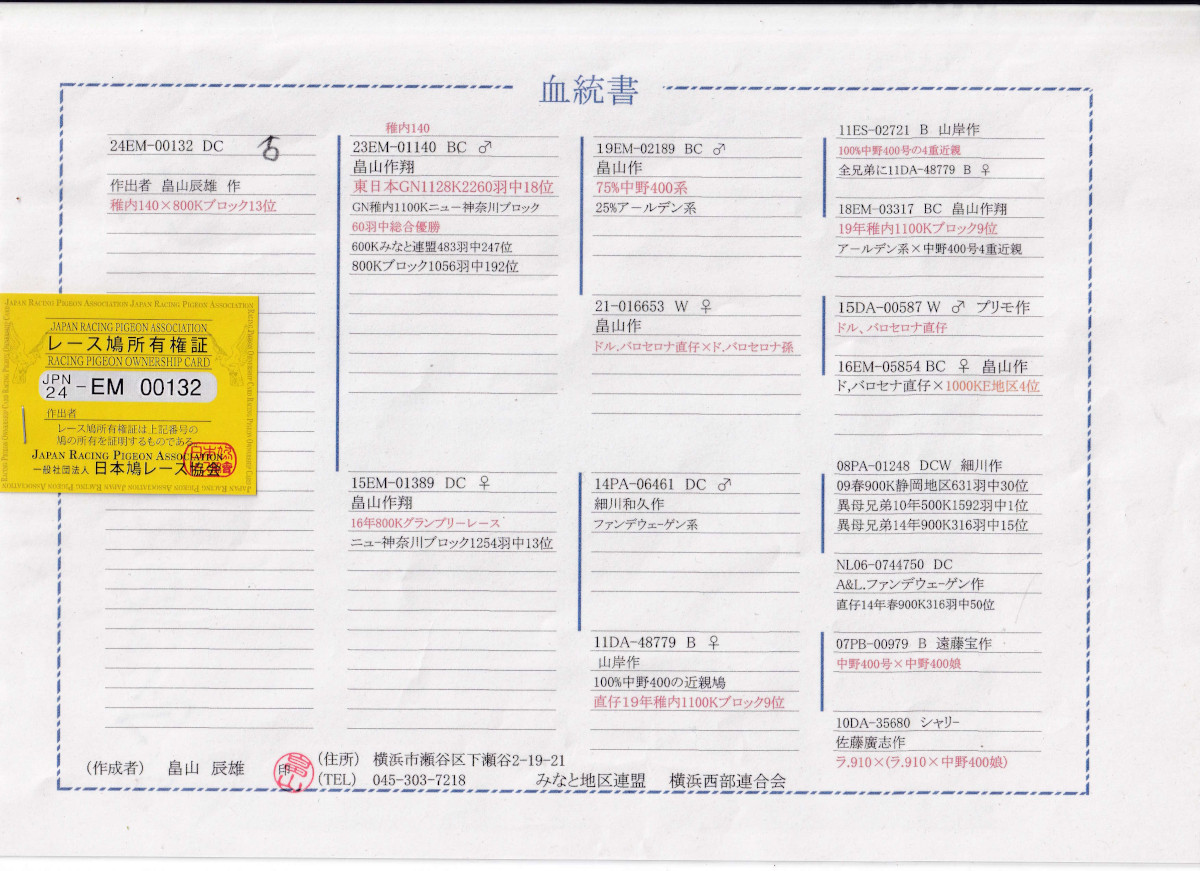 血統書
24EM-00132 DC ♂
作出者 畠山辰雄 作
稚内140×800Kブロック13位
JAPAN RACING PIGEON ASSOCIATION JAPAN RACING PIGEON ASSOCIATION
JAPAN RACING PIGEON ASSOCIATION
レース鳩所有権証
RACING PIGEON OWNERSHIP CARD
JPN
24 -EM 00132
作出者
レース鳩所有権証は上記番号の
鳩の所有を証明するものである。
JAPAN RACING PIGEON ASSOCIATION
一般社団法人 日本鳩レース協会
稚内140
23EM-01140 BC ♂
畠山作翔
東日本GN1128K2260羽中18位
GN稚内1100Kニュー神奈川ブロック
60羽中総合優勝
600Kみなと連盟483羽中247位
800Kブロック1056羽中192位
15EM-01389 DC ♀
畠山作翔
16年800Kグランプリーレース
ニュー神奈川ブロック1254羽中13位
19EM-02189 BC ♂
畠山作
75%中野400系
25%アールデン系
21-016653 W ♀
畠山作
ドル.バロセロナ直仔×ド.バロセロナ孫
14PA-06461 DC ♂
細川和久作
ファンデウェーゲン系
11DA-48779 B ♀
山岸作
100%中野400の近親鳩
直仔19年稚内1100Kブロック9位
11ES-02721 B 山岸作
100%中野400号の4重近親
全兄弟に11DA-48779 B ♀
18EM-03317 BC 畠山作翔
19年稚内1100Kブロック9位
アールデン系×中野400号4重近親
15DA-00587 W ♂ プリモ作
ドル、バロセロナ直仔
16EM-05854 BC ♀ 畠山作
ド,バロセナ直仔×1000KE地区4位
08PA-01248 DCW 細川作
09春900K静岡地区631羽中30位
異母兄弟10年500K1592羽中1位
異母兄弟14年900K316羽中15位
NL06-0744750 DC
A&L.ファンデウェーゲン作
直仔14年春900K316羽中50位
07PB-00979 B 遠藤宝作
中野400号×中野400娘
10DA-35680 シャリー
佐藤廣志作
ラ.910×(ラ.910×中野400娘)
(作成者) 畠山 辰雄 印 畠山
(住所) 横浜市瀬谷区下瀬谷2-19-21
(TEL) 045-303-7218 みなと地区連盟 横浜西部連合会